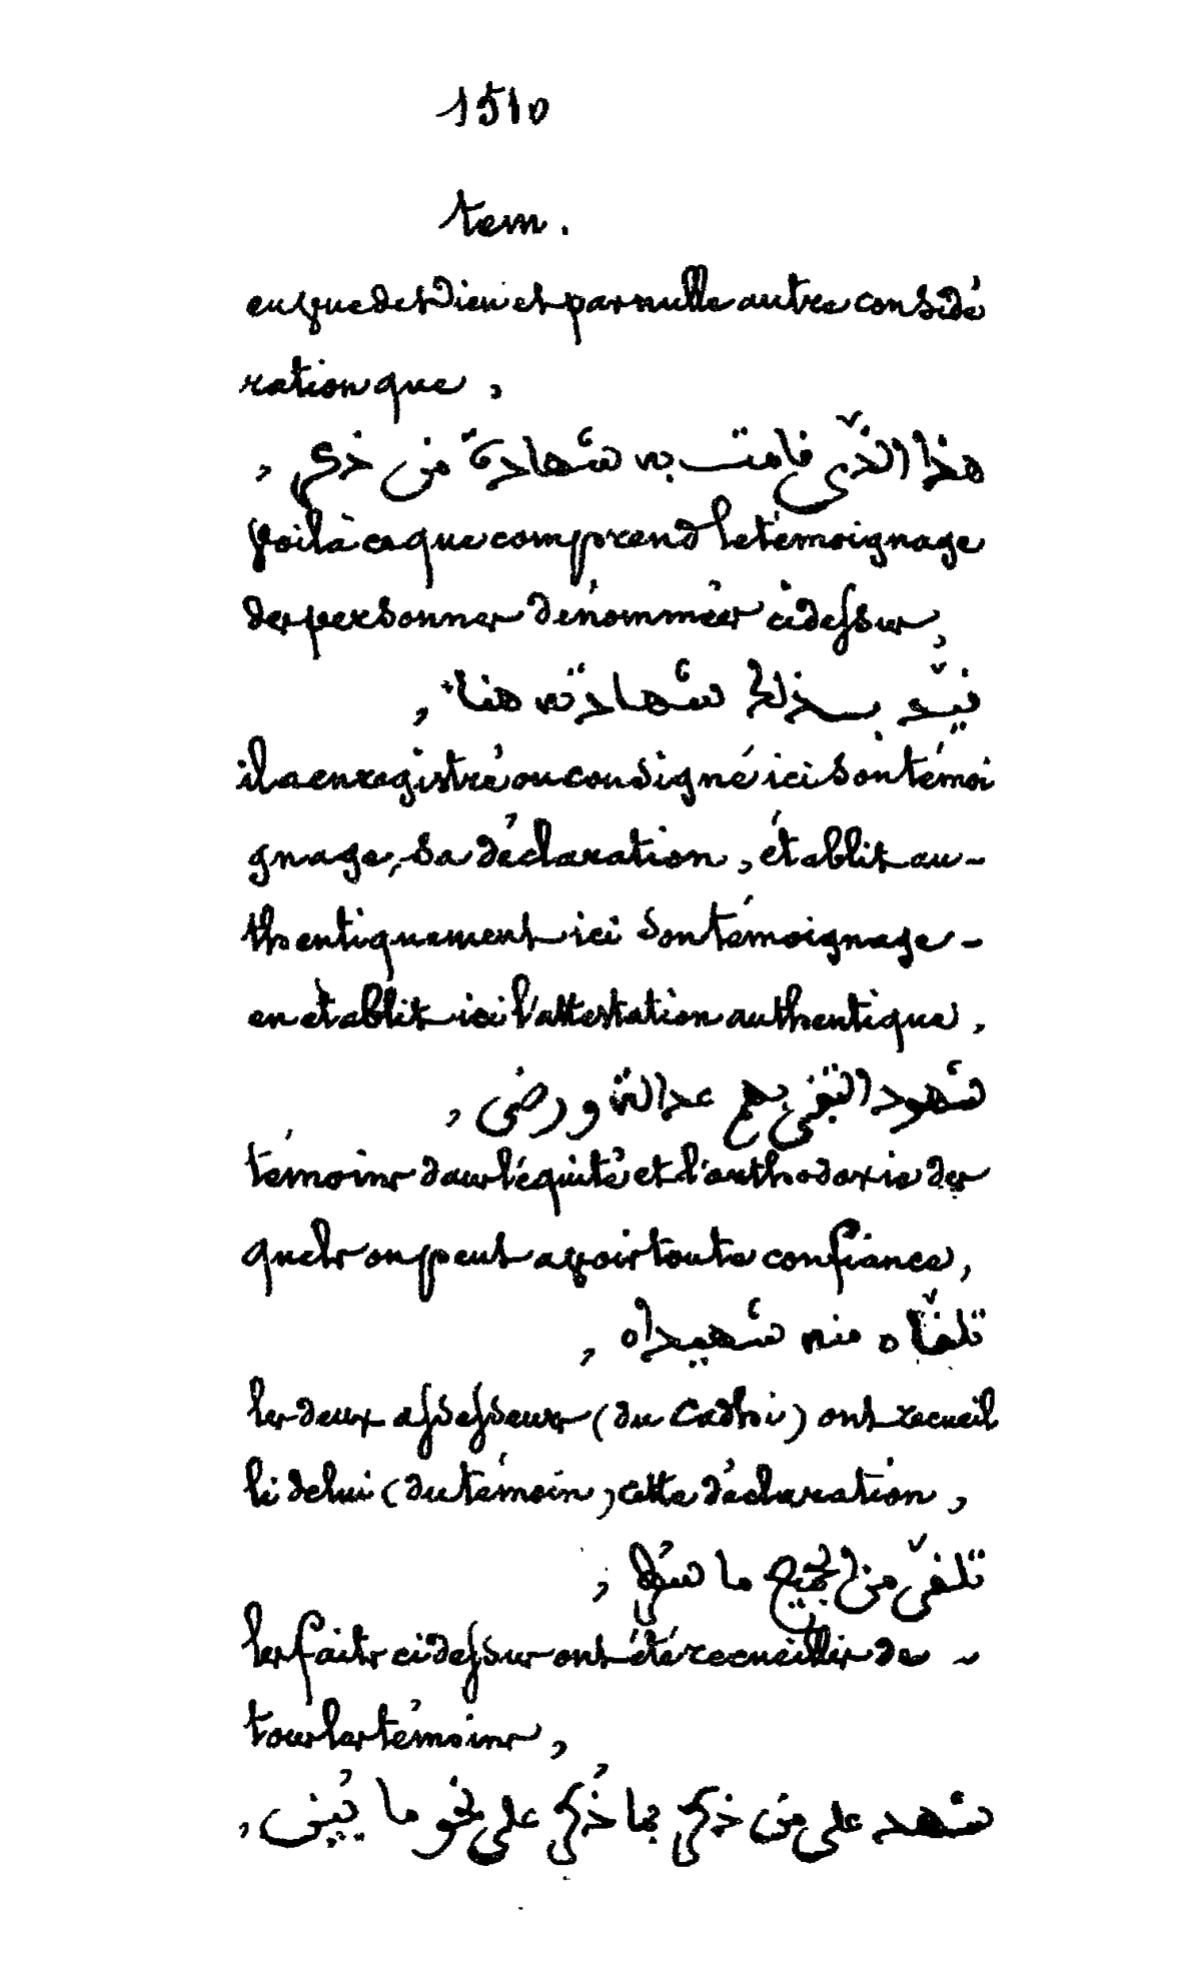 1510
tem.
en vue de Dieu et par nulle autre considé
ration que,
هذا الذّي فامت به شهادة من ذكر,
voilà ce que comprend le témoignage
des personnes dénommées ci dessus,
فيّد بذلك شهادته هنا,
il a enregistré ou consigné ici son témoi
gnage, sa déclaration, établit au-
thentiquement ici son témoignage -
en établit ici l'attestation authentique,
شهود التفى بهم عدالة ورضى,
témoins dans l'équité et l'orthodoxie des
quels on peut avoir toute confiance,
تلفّاه منه شهيداه,
les deux assesseurs (du Cadhi) ont recueil
li de lui (du témoin) cette déclaration,
تلفّى من الجميع ما
les faits ci dessus ont été recueillis de -
tous les témoins,
شهد على من ذكر بما ذُكر على نحو ما يُبيّن,